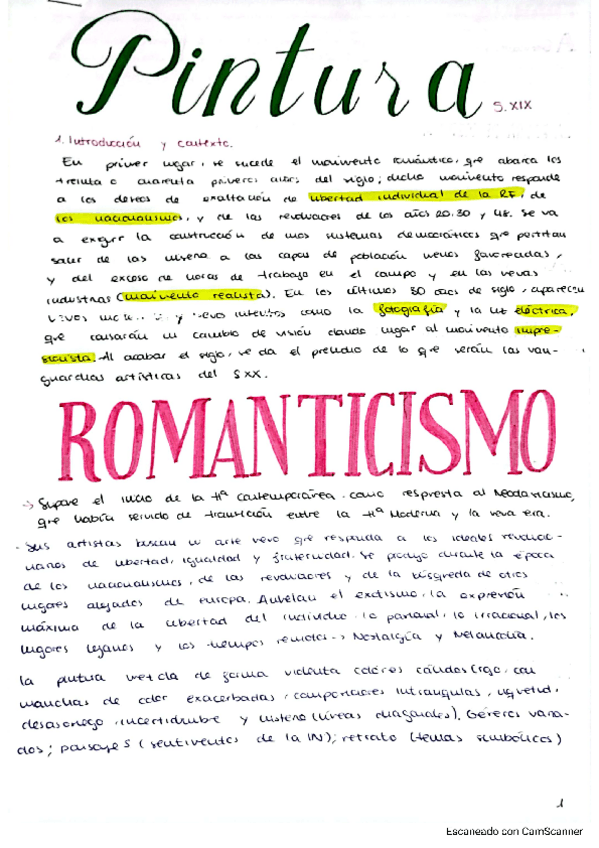 Pintura S. XIX
1. Introducción y contexto.
En primer lugar, se sucede el movimiento romántico, que abarca los
treinta o cuarenta primeros años del siglo; dicho movimiento responde
a los deseos de exaltación de libertad individual de la RF, de
los nacionalismos, y de las revoluciones de los años 20, 30 y 48. Se va
a exigir la construcción de unos sistemas democráticos que permitan
salir de la miseria a las capas de población menos favorecidas,
y del exceso de horas de trabajo en el campo y en las nuevas
industrias (movimiento realista). En los últimos 30 años de siglo, aparecen
nuevos y nuevos inventos como la fotografía y la luz eléctrica,
que causarán un cambio de visión dando lugar al movimiento impre-
sionista. Al acabar el siglo, se da el preludio de lo que serán las van-
guardias artísticas del S XX.
ROMANTICISMO
-> Supone el inicio de la Hª Contemporánea como respuesta al Neoclasicismo,
que había servido de transición entre la Hª Moderna y la nueva era.
- Sus artistas buscan un arte nuevo que responda a los ideales revolucio-
narios de libertad, igualdad y fraternidad. Se produjo durante la época
de los nacionalismos, de las revoluciones y de la búsqueda de otros
lugares alejados de Europa. Anhelan el exotismo, la expresión
máxima de la libertad del individuo, lo pasional, lo irracional, los
lugares lejanos y los tiempos remotos -> Nostalgia y Melancolía.
La pintura mezcla de forma violenta colores cálidos (rojo, con
manchas de color exacerbadas, composiciones intranquilas, inquietud,
desasosiego, incertidumbre y misterio (líneas diagonales). Géneros varia-
dos; paisajes (sentimientos de la IN); retrato (temas simbólicos)
1
Escaneado con CamScanner